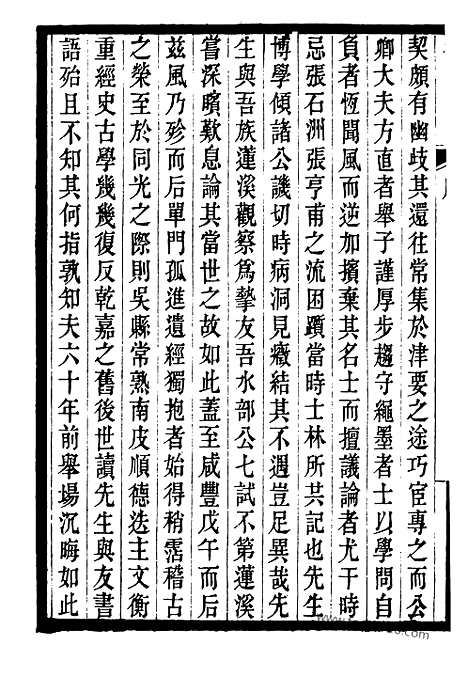 契頗有幽歧其還往常集於津要之途巧宦專之而公
卿大夫方直者舉子謹厚步趨字繩墨者士以學問自
負者恆聞風而逆加擯棄其名士而擅議論者尤干時
忌張石洲張亨甫之流困躓當時士林所共記也先生
博學傾諸公譏切時病洞見癥結其不遇豈足異哉先
生與吾族蓮溪觀察爲摯友吾水部公七試不第蓮溪
嘗深矉歎息論其當世之故如此蓋至咸豐戊午而后
茲風乃殄而后單門孤進遺經獨抱者始得稍霑稽古
之榮至於同光之際則吳縣常熟南皮順德迭主文衡
重經史古學幾幾復反乾嘉之舊後世讀先生與友書
語殆且不知其何指孰知夫六十年前舉場沉晦如此